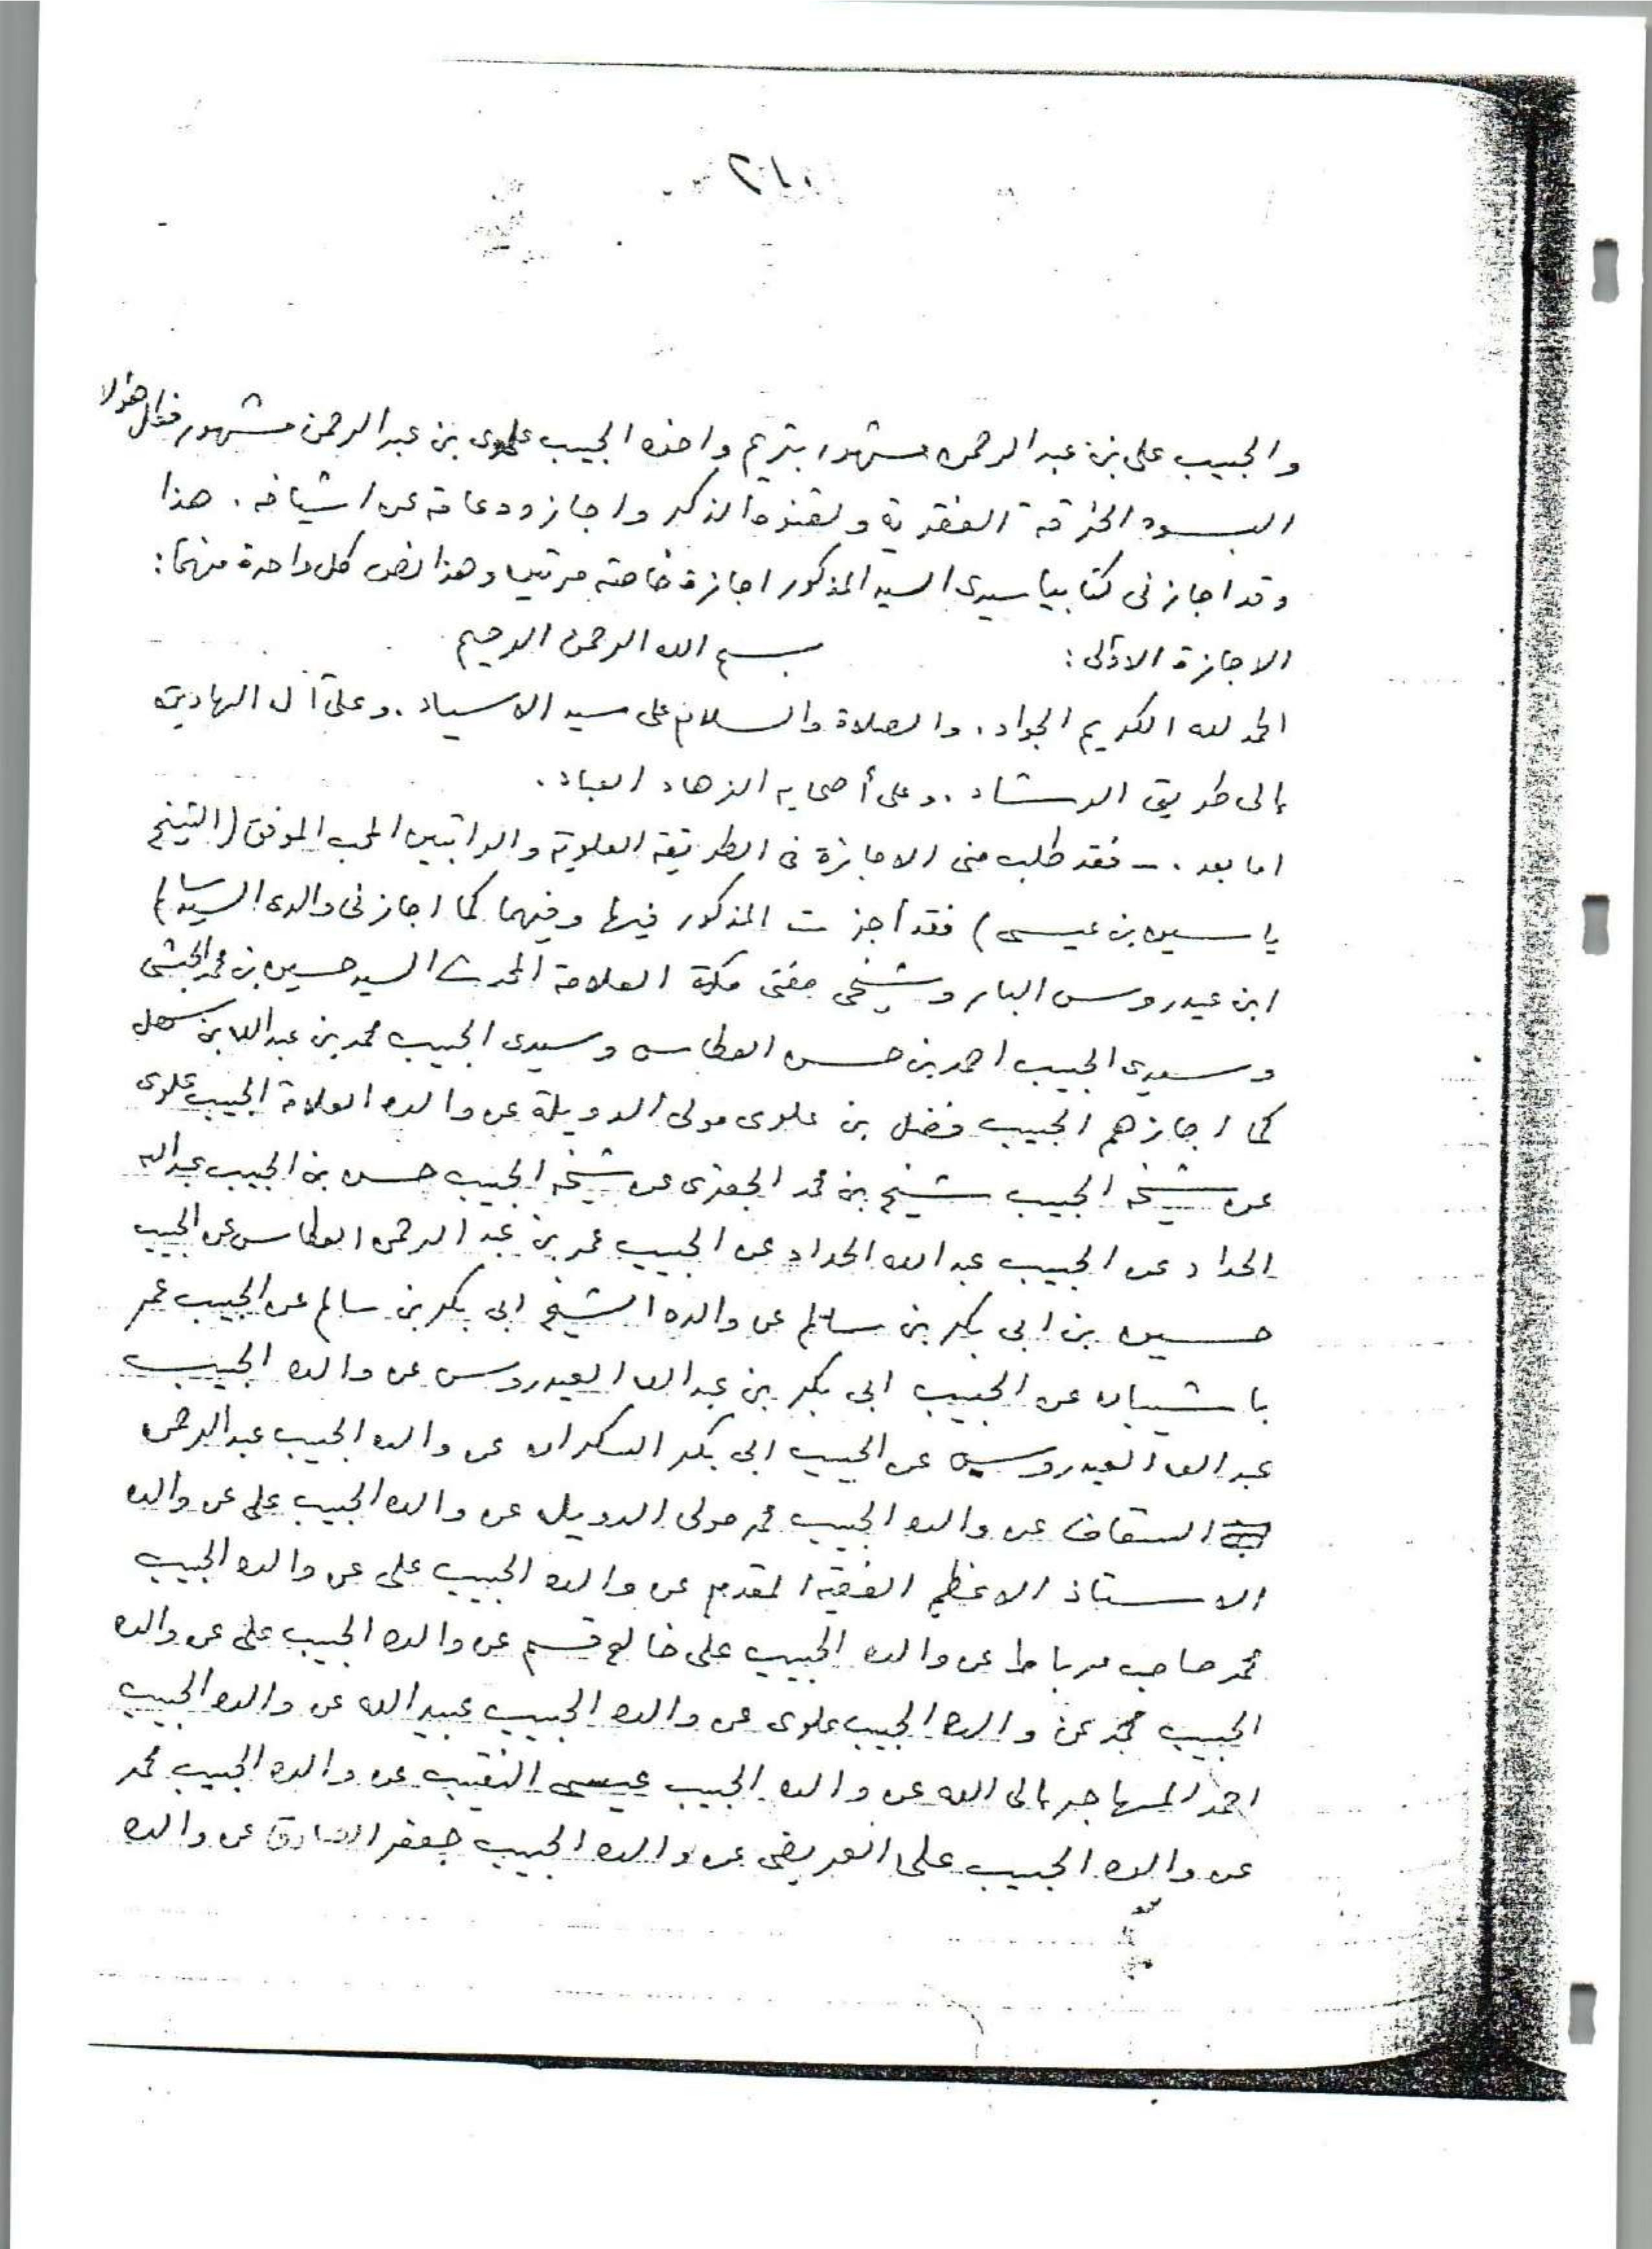 ٢١٠
والحبيب على بن عبد الرحمن مشهور بتريم واخذه الحبيب علوى بن عبد الرحمن مشهور فكل هؤلاء
البسوه الخرقة الفقرية ولقنوه الذكر واجازوه عامة عن اشياخه . هذا
وقد اجازنى كتابيا سيدى السيد المذكور اجازة خاصة مرتين وهذا نص كل واحدة منهما :
الاجازة الاولى : بسم الله الرحمن الرحيم
الحمد لله الكريم الجواد . والصلاة والسلام على سيد الاسياد . وعلى آل الهادين
إلى طريق الرشاد . وعلى أصحابه الزهاد العباد .
اما بعد . - فقد طلب منى الاجازة فى الطريقة العلوية والراتبين المحب الموفق (الشيخ
ياسين بن عيسى) فقد أجزت المذكور فيها وفيهما كما اجازنى والدى السيد سالم
ابن عيدروس البار وشيخى مفتى مكة العلامة المحدث السيد حسين بن محمد الحبشى
وسيدى الحبيب احمد بن حسن العطاس وسيدى الحبيب محمد بن عبد الله بن سهل
كما اجازهم الحبيب فضل بن علوى مولى الدويلة عن والده العلامة الحبيب علوى
عن شيخه الحبيب شيخ بن محمد الجفرى عن شيخه الحبيب حسن بن الحبيب عبد الله
الحداد عن الحبيب عبد الله الحداد عن الحبيب عمر بن عبد الرحمن العطاس عن الحبيب
حسين بن ابى بكر بن سالم عن والده الشيخ ابى بكر بن سالم عن الحبيب عمر
باشيبان عن الحبيب ابى بكر بن عبد الله العيدروس عن والده الحبيب
عبد الله العيدروس عن الحبيب ابى بكر السكران عن والده الحبيب عبد الرحمن
السقاف عن والده الحبيب محمد مولى الدويل عن والده الحبيب على عن والده
الاستاذ الاعظم الفقيه المقدم عن والده الحبيب على عن والده الحبيب
محمد صاحب مرباط عن والده الحبيب على خالع قسم عن والده الحبيب على عن والده
الحبيب محمد عن والده الحبيب علوى عن والده الحبيب عبيد الله عن والده الحبيب
احمد المهاجر إلى الله عن والده الحبيب عيسى النقيب عن والده الحبيب محمد
عن والده الحبيب على العريضى عن والده الحبيب جعفر الصادق عن والده